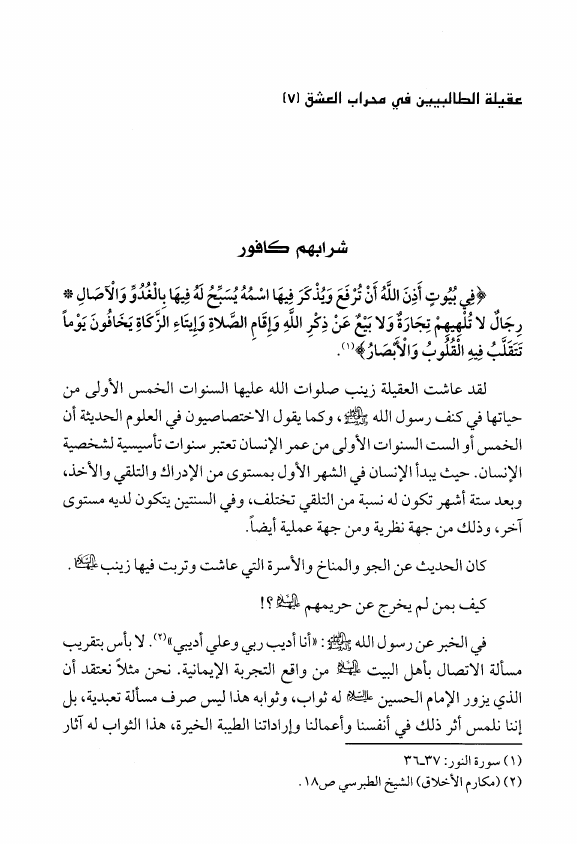 عقيلة الطالبيين في محراب العشق (٧)
شرابهم كافور
﴿فِي بُيُوتٍ أَذِنَ اللَّهُ أَنْ تُرْفَعَ وَيُذْكَرَ فِيهَا اسْمُهُ يُسَبِّحُ لَهُ فِيهَا بِالْغُدُوِّ وَالْآصَالِ *
رِجَالٌ لا تُلْهِيهِمْ تِجَارَةٌ وَلا بَيْعٌ عَنْ ذِكْرِ اللَّهِ وَإِقَامِ الصَّلاةِ وَإِيتَاءِ الزَّكَاةِ يَخَافُونَ يَوْماً
تَتَقَلَّبُ فِيهِ الْقُلُوبُ وَالْأَبْصَارُ﴾(١).
لقد عاشت العقيلة زينب صلوات الله عليها السنوات الخمس الأولى من
حياتها في كنف رسول الله ﷺ، وكما يقول الاختصاصيون في العلوم الحديثة أن
الخمس أو الست السنوات الأولى من عمر الإنسان تعتبر سنوات تأسيسية لشخصية
الإنسان. حيث يبدأ الإنسان في الشهر الأول بمستوى من الإدراك والتلقي والأخذ،
وبعد ستة أشهر تكون له نسبة من التلقي تختلف، وفي السنتين يتكون لديه مستوى
آخر، وذلك من جهة نظرية ومن جهة عملية أيضاً.
كان الحديث عن الجو والمناخ والأسرة التي عاشت وتربت فيها زينب .
كيف بمن لم يخرج عن حريمهم ؟!
في الخبر عن رسول الله ﷺ: «أنا أديب ربي وعلي أديبي»(٢). لا بأس بتقريب
مسألة الاتصال بأهل البيت من واقع التجربة الإيمانية. نحن مثلاً نعتقد أن
الذي يزور الإمام الحسين له ثواب، وثوابه هذا ليس صرف مسألة تعبدية، بل
إننا نلمس أثر ذلك في أنفسنا وأعمالنا وإراداتنا الطيبة الخيرة، هذا الثواب له آثار
(١) سورة النور: ٣٧ـ٣٦
(٢) (مكارم الأخلاق) الشيخ الطبرسي ص١٨.